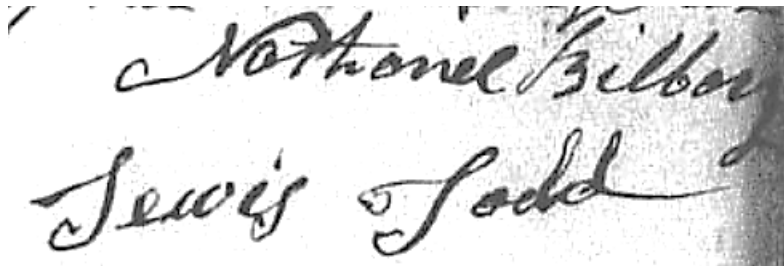 Nathanel Bilboy
Lewis Todd